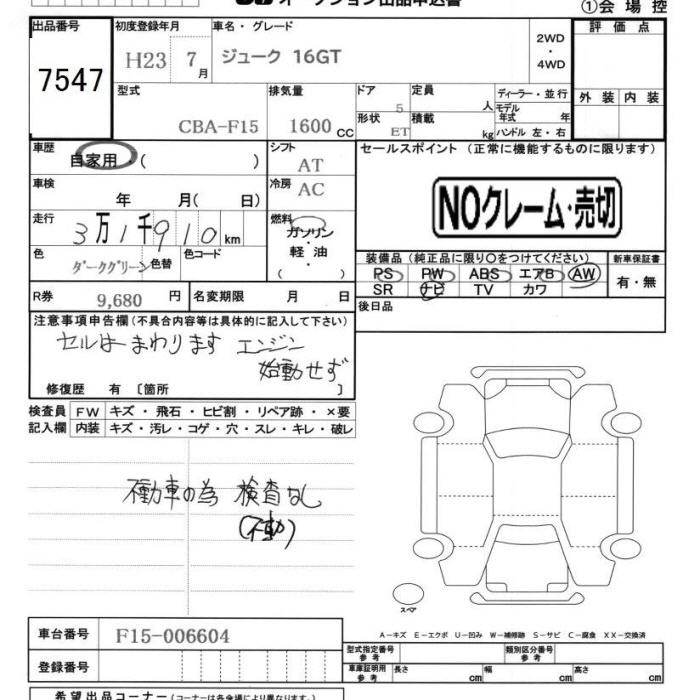 オークション出品申込書
①会場控
出品番号 初度登録年月 車名・グレード 評価点
7547 H23 7月 ジューク 16GT 2WD・4WD
型式 排気量 ドア 定員 ディーラー・並行 外装 内装
CBA-F15 1600cc 5 人 モデル年式 年
形状 ET 積載 kg ハンドル 左・右
車歴 自家用・( ) シフト AT セールスポイント(正常に機能するものに限ります)
車検 年 月( 日) 冷房 AC
NOクレーム・売切
走行 3万1千910km 燃料 ガソリン・軽油・( )
色 ダークグリーン 色替 色コード
装備品(純正品に限り○をつけてください) 新車保証書
PS PW ABS エアB AW 有・無
SR ナビ TV カワ
R券 9,680円 名変期限 月 日 後日品
注意事項申告欄(不具合内容等は具体的に記入して下さい)
セルはまわります エンジン
始動せず
修復歴 有〔箇所 〕
検査員 FW キズ・飛石・ヒビ割・リペア跡・×要
記入欄 内装 キズ・汚レ・コゲ・穴・スレ・キレ・破レ
不動車の為 検査なし
(不動)
スペア
A-キズ E-エクボ U-凹み W-補修跡 S-サビ C-腐食 XX-交換済
車台番号 F15-006604
型式指定番号 参考 類別区分番号 参考
登録番号
車庫証明用 参考 長さ cm 幅 cm 高さ cm
希望出品コーナー(コーナーは各会場により異なります)